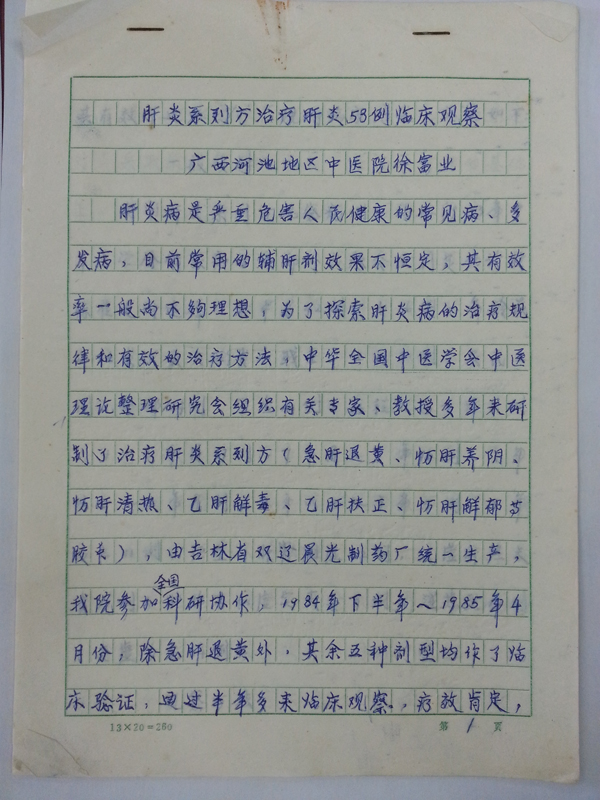 肝炎系列方治疗肝炎53例临床观察
广西河池地区中医院徐富业
肝炎病是严重危害人民健康的常见病、多
发病，目前常用的辅肝剂效果不恒定，其有效
率一般尚不够理想，为了探索肝炎病的治疗规
律和有效的治疗方法，中华全国中医学会中医
理论整理研究会组织有关专家、教授多年来研
制了治疗肝炎系列方（急肝退黄、慢肝养阴、
慢肝清热、乙肝解毒、乙肝扶正、慢肝解郁等
胶囊），由吉林省双辽晨光制药厂统一生产，
我院参加全国科研协作，1984年下半年～1985年4
月份，除急肝退黄外，其余五种剂型均作了临
床验证，通过半年多来临床观察，疗效肯定，
13×20=260
第1页